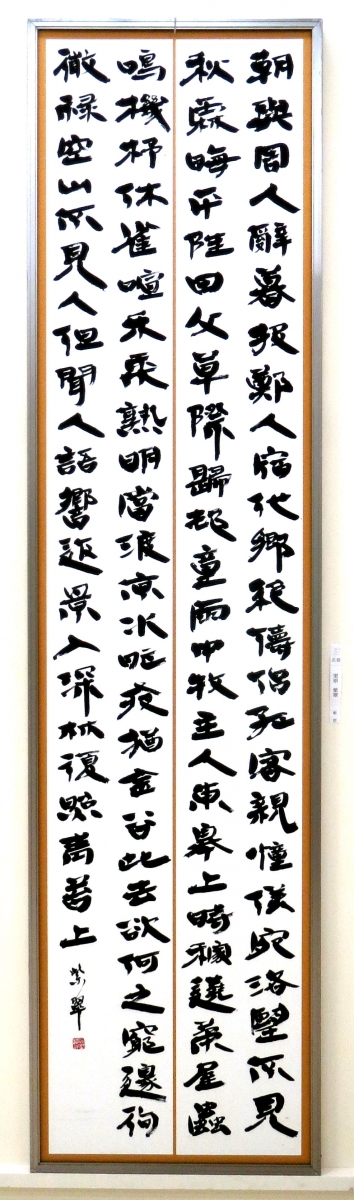 朝與周人辭暮投鄭人宿他鄉絕儔侶孤客親僮僕宛洛望不見
秋霖晦平陸田父草際歸邨童雨中牧主人東皋上時稼遶茅屋蟲
鳴機杼休雀喧禾黍熟明當渡京水昨夜猶金谷此去欲何之窮邊徇
微祿空山不見人但聞人語響返景入深林復照青苔上
紫翠